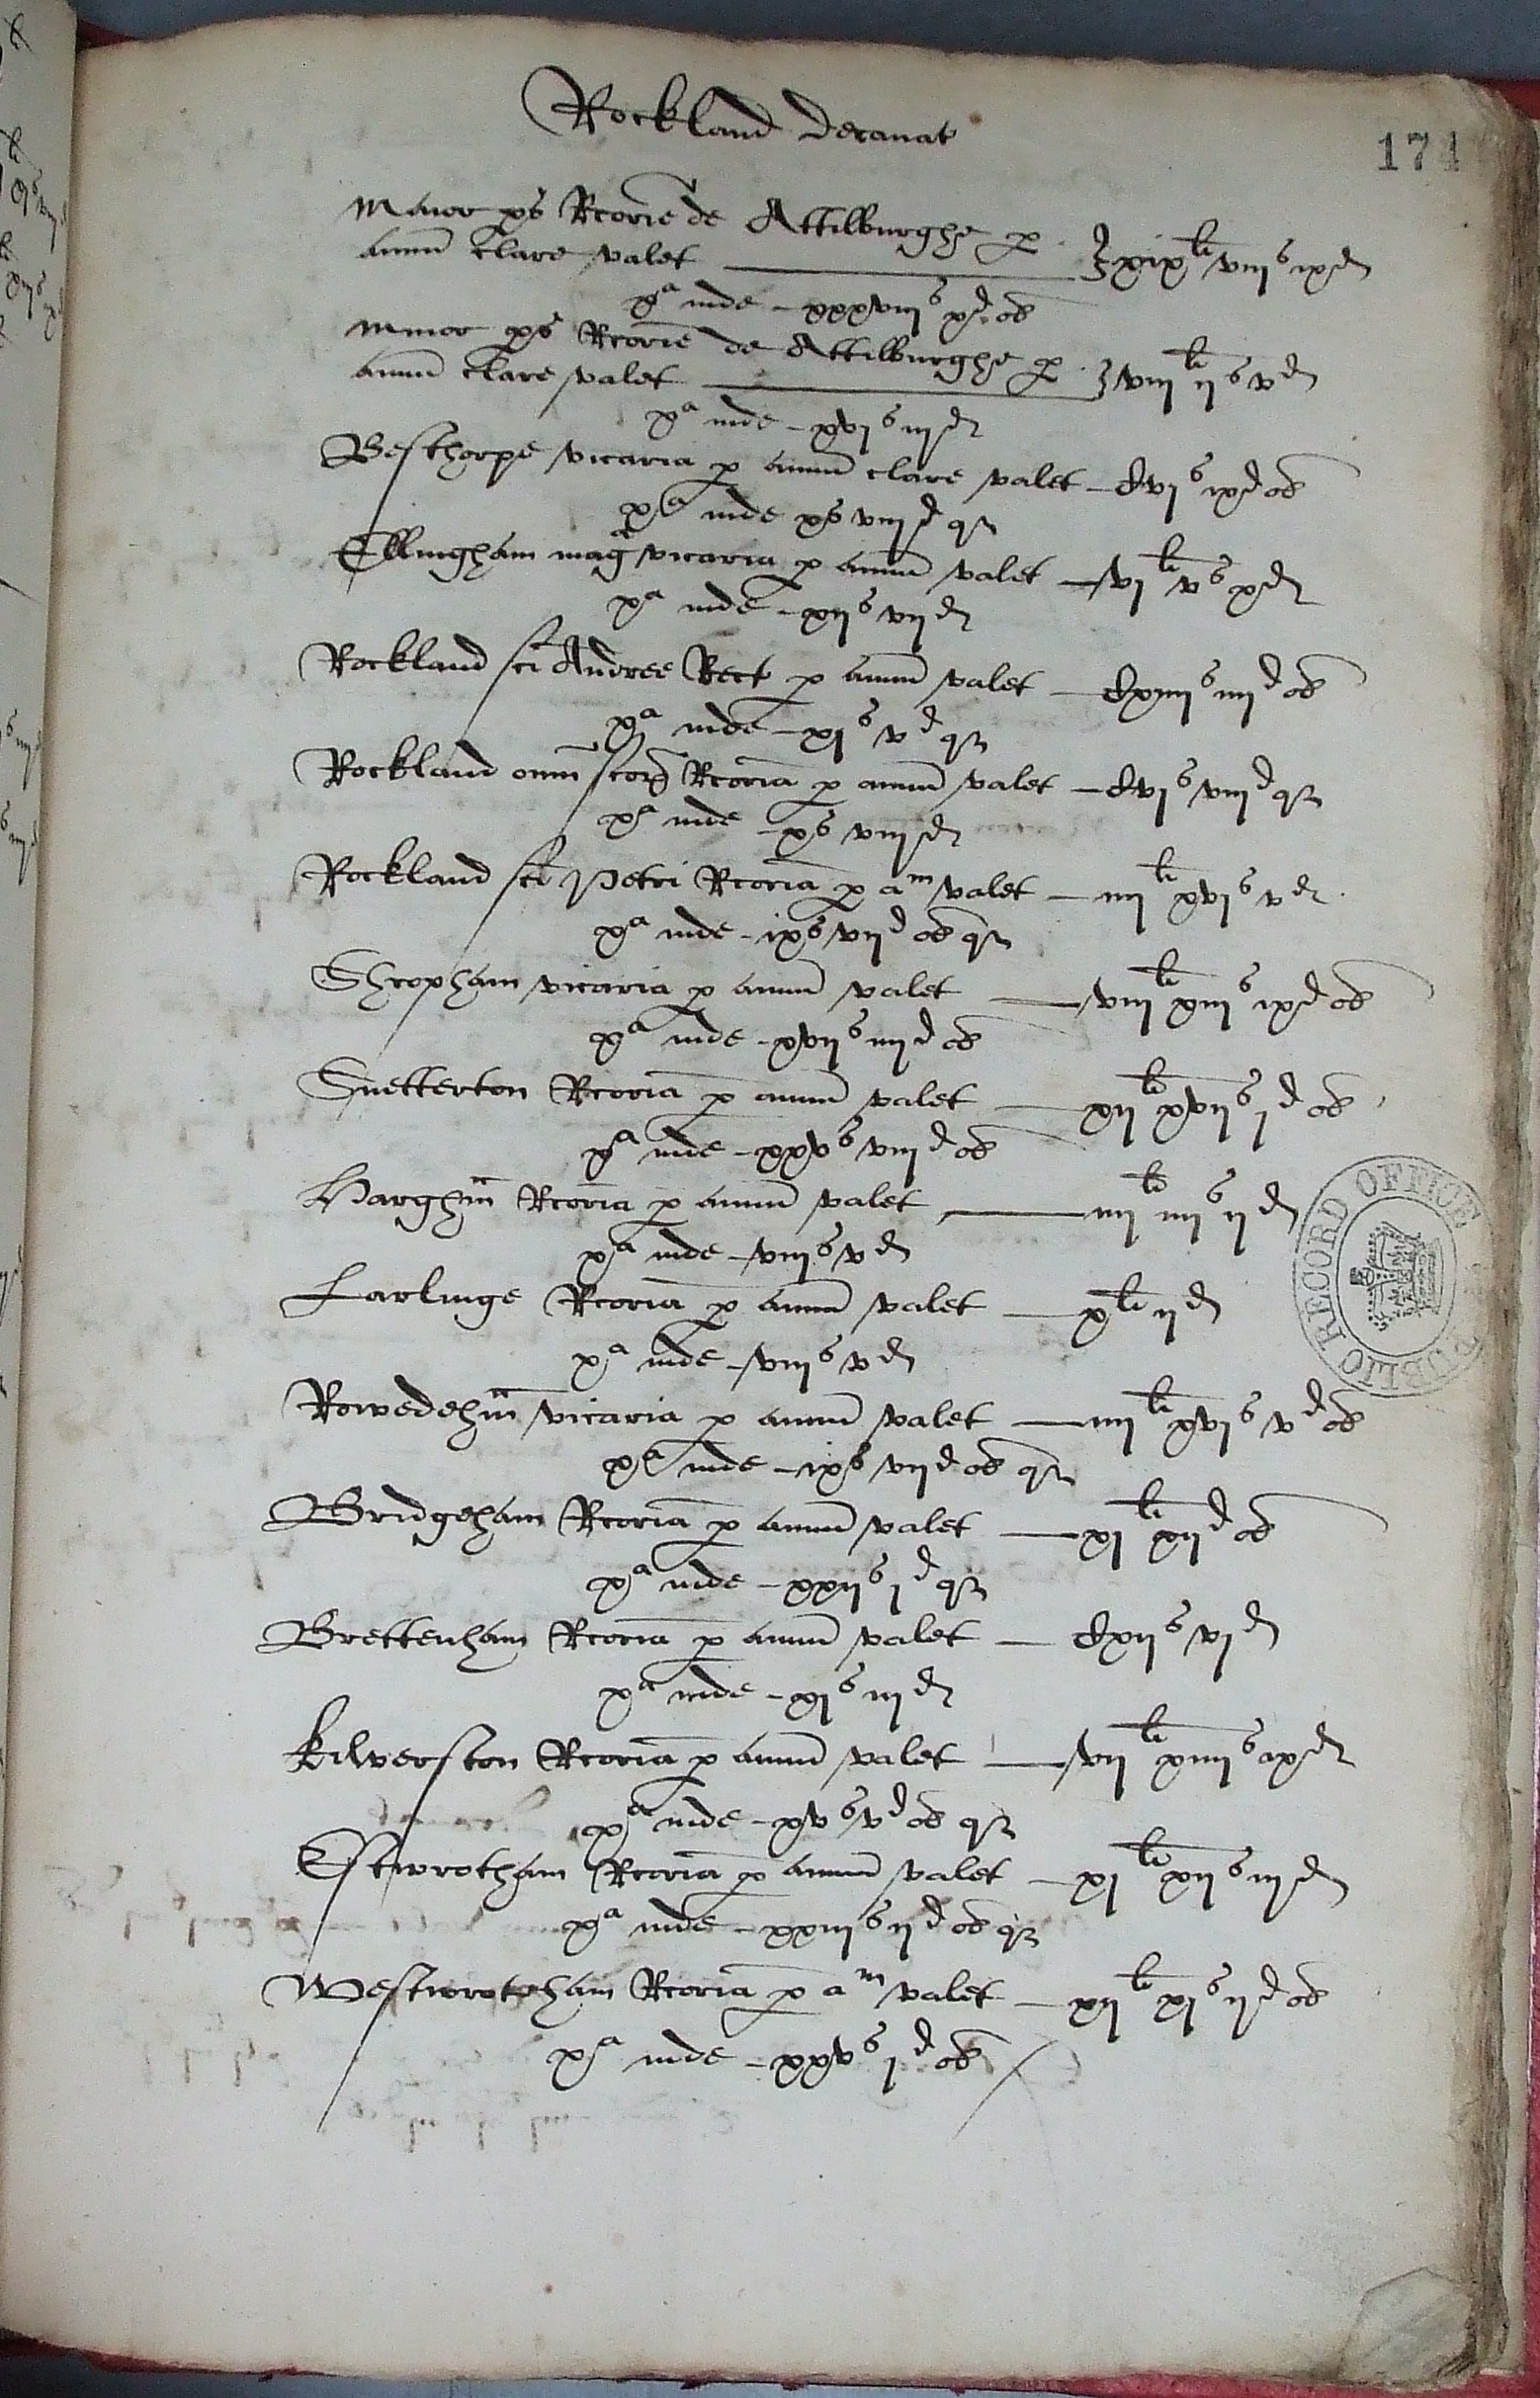 Rockland decanat
174
Maior ps Rcorie de Attilburghe p
annu clare valet — xix li viij s ix d
xa inde - xxxviij s x d ob
Minor ps Rcorie de Attilburghe p
annu clare valet — viij li ij s v d
xa inde - xvj s iij d
Besthorpe vicaria p annu clare valet - Cvj s ix d ob
xa inde x s viij d qa
Ellingham mag vicaria p annu valet — vj li v s x d
xa inde - xij s vij d
Rockland sci Andree Rect p annu valet — Cxiiij s iiij d ob
xa inde - xj s v d qa
Rockland omn scorp Rcoria p annu valet — Cvj s viij d qa
xa inde - x s viij d
Rockland sci Petri Rcoria p am valet — iiij li xvj s v d
xa inde - ix s vij d ob qa
Shropham vicaria p annu valet — viij li xiij s ix d ob
xa inde - xvij s iiij d ob
Snetterton Rcoria p annu valet — xij li xvij s j d ob
xa inde - xxv s viij d ob
Harghm Rcoria p annu valet — iiij li iiij s ij d
xa inde - viij s v d
Larlinge Rcoria p annu valet — x li ij d
xa inde - viij s v d
Rowdehm vicaria p annu valet — iiij li xvj s v d ob
xa inde - ix s vij d ob qa
Bridgeham Rcoria p annu valet — xj li xij d ob
xa inde - xxij s j d qa
Brettenham Rcoria p annu valet — Cxij s vj d
xa inde - xj s iij d
Kilverston Rcoria p annu valet — vij li xiiij s ix d
xa inde - xv s v d ob qa
Estwrotham Rcoria p annu valet — xj li xij s iij d
xa inde - xxiij s ij d ob qa
Westwrotham Rcoria p am valet — xij li xj s ij d ob
xa inde - xxv s j d ob
PUBLIC RECORD OFFICE